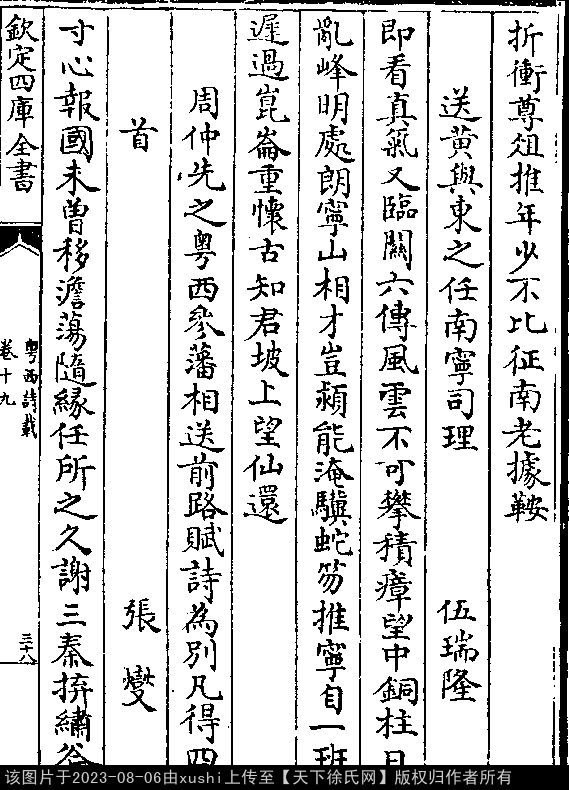 折衝尊俎推年少不比征南老據鞍
送黄與東之任南寧司理 伍瑞隆
即看真氣又臨關六傳風雲不可攀積瘴望中銅柱日
亂峰明處朗寧山相才豈頴能淹驥蛇笏推寧自一班
遲過崑崙重懷古知君坡上望仙還
周仲先之粤西叅藩相送前路賦詩為别凡得四
首 張燮
寸心報國未曽移澹蕩隨緣任所之久謝三秦捹繡谷
欽定四庫全書
粤西詩載
卷十九
三十八
该图片于2023-08-06由xushi上传至【天下徐氏网】版权归作者所有